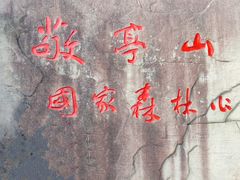 敬亭山
国家森林公